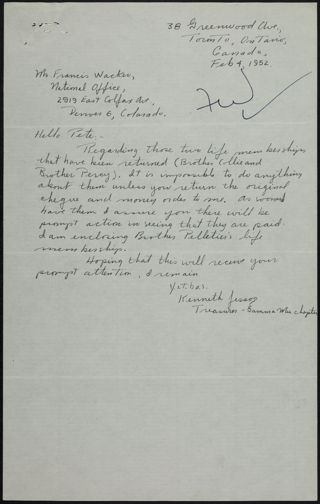 38 Greenwood Ave,
Toronto, Ontario,
Canada,
Feb 4, 1952
Mr. Francis Wacker,
National Office,
2919 East Colfax Ave.,
Denver 6, Colorado.
Hello Pete,-
Regarding those two life memberships
that have been returned (Brother Collie and
Brother Percy). It is impossible to do anything
about them unless you return the original
cheque and money order to me. As soon as I
have them I assure you there will be
prompt action in seeing that they are paid.
I am enclosing Brother Pelletier's life
membership.
Hoping that this will receive your
prompt attention, I remain
Yit. bos.
Kenneth Jessop
Treasurer - Gamma Mu chapter